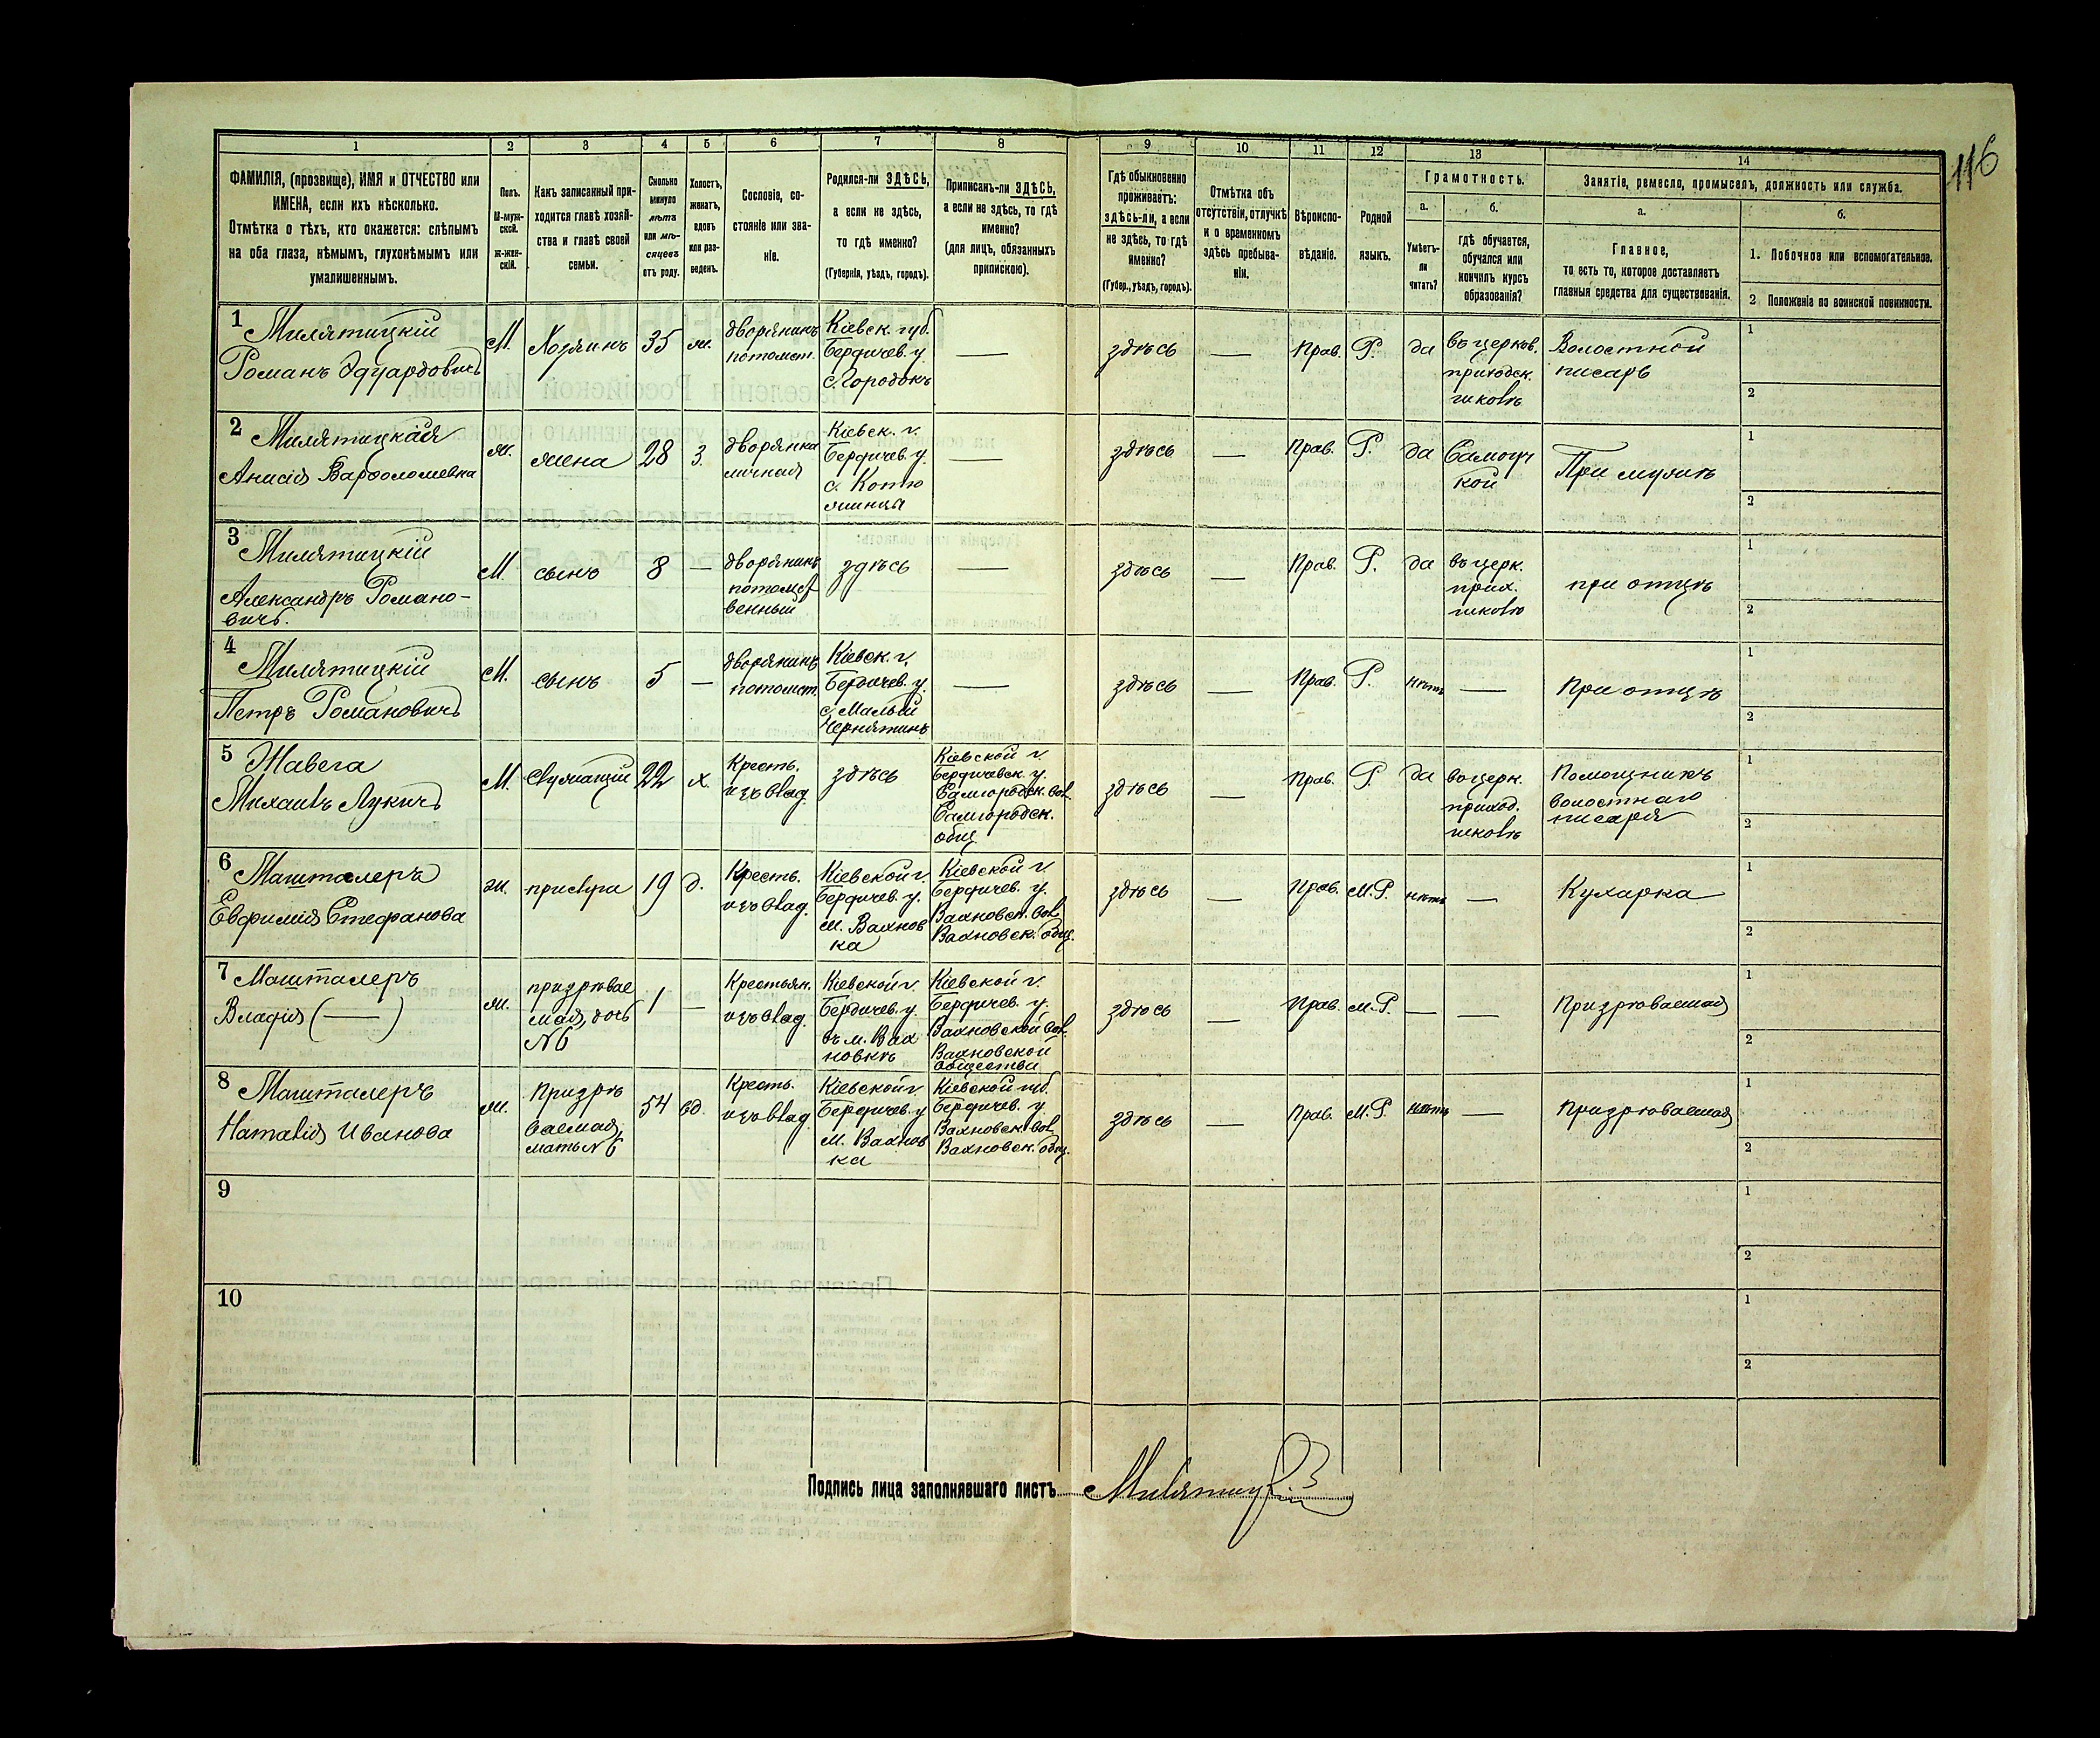 116
1 2 3 4 5 6 7 8 9 10 11 12 13 14
ФАМИЛІЯ, (прозвище), ИМЯ и ОТЧЕСТВО или
ИМЕНА, если ихъ нѣсколько.
Отмѣтка о тѣхъ, кто окажется: слѣпымъ
на оба глаза, нѣмымъ, глухонѣмымъ или
умалишеннымъ.
Полъ.
М-муж-
ской.
ж-жен-
скій.
Какъ записанный при-
ходится главѣ хозяй-
ства и главѣ своей
семьи.
Сколько
минуло
лѣтъ
или мѣ-
сяцевъ
отъ роду.
Холостъ,
женатъ,
вдовъ
или раз-
веденъ.
Сословіе, со-
стояніе или зва-
ніе.
Родился-ли ЗДѢСЬ,
а если не здѣсь,
то гдѣ именно?
(Губернія, уѣздъ, городъ).
Приписанъ-ли ЗДѢСЬ,
а если не здѣсь, то гдѣ
именно?
(для лицъ, обязанныхъ
припискою).
Гдѣ обыкновенно
проживаетъ:
здѣсь-ли, а если
не здѣсь, то гдѣ
именно?
(Губер., уѣздъ, городъ).
Отмѣтка объ
отсутствіи, отлучкѣ
и о временномъ
здѣсь пребыва-
ніи.
Вѣроиспо-
вѣданіе.
Родной
языкъ.
Грамотность.
а.
Умѣетъ-
ли
читать?
б.
гдѣ обучается,
обучался или
кончилъ курсъ
образованія?
Занятіе, ремесло, промыселъ, должность или служба.
а.
Главное,
то есть то, которое доставляетъ
главныя средства для существованія.
б.
1. Побочное или вспомогательное.
2 Положеніе по воинской повинности.
1
Милятицкій
Романъ Эдуардовичъ
М.
Хозяинъ
35
ж.
дворянинъ
потомст.
Кіевск. губ.
Бердичев. у.
с. Городокъ
—
здѣсь
—
Прав.
Р.
да
въ церков.
приходск.
школѣ
Волостной
писарь
1
2
2
Милятицкая
Анисія Варфоломеевна
ж.
жена
28
З.
дворянка
личная
Кіевск. г.
Бердичев. у.
с. Котю
жинцы
—
здѣсь
—
Прав.
Р.
да
Самоуч
кой
При мужѣ
1
2
3
Милятицкій
Александръ Романо-
вичъ.
М.
сынъ
8
—
дворянинъ
потомст
венный
здѣсь
—
здѣсь
—
Прав.
Р.
да
въ церк.
прих.
школѣ
при отцѣ
1
2
4
Милятицкій
Петръ Романовичъ
М.
сынъ
5
—
дворянинъ
потомст.
Кіевск. г.
Бердичев. у.
с. Малый
Чернятинъ
—
здѣсь
—
Прав.
Р.
нѣтъ
—
При отцѣ
1
2
5
Жавега
Михаилъ Лукичъ
М.
Служащій
22
х.
Кресть.
изъ влад.
здѣсь
Кіевской г.
Бердичевск. у.
Самгородск. вол.
Самгородск.
общ
здѣсь
—
Прав.
Р.
да
въ церк.
приход.
школѣ
Помощникъ
волостнаго
писаря
1
2
6
Машталеръ
Евфимія Стефанова
ж.
прислуга
19
д.
Кресть.
изъ влад.
Кіевской г.
Бердичев. у.
м. Вахнов
ка
Кіевской г.
Бердичев. у.
Вахновск. вол.
Вахновск. общ.
здѣсь
—
Прав.
М.Р.
нѣтъ
—
Кухарка
1
2
7
Машталеръ
Владія (—)
ж.
призрѣвае
мая, дочь
№6
1
—
Крестьян.
изъ влад.
Кіевской г.
Бердичев. у.
въ м. Вах
новкѣ
Кіевской г.
Бердичев. у.
Вахновской вол.
Вахновской
общества
здѣсь
—
Прав.
М.Р.
—
—
Призрѣваемая
1
2
8
Машталеръ
Наталія Иванова
ж.
Призрѣ
ваемая,
мать №6
54
вд.
Кресть.
изъ влад.
Кіевской г.
Бердичев. у
м. Вахнов
ка
Кіевской губ.
Бердичев. у
Вахновск. вол.
Вахновск. общ.
здѣсь
—
Прав.
М.Р.
нѣтъ
—
Призрѣваемая
1
2
9
1
2
10
1
2
Подпись лица заполнявшаго листъ Милятицкій